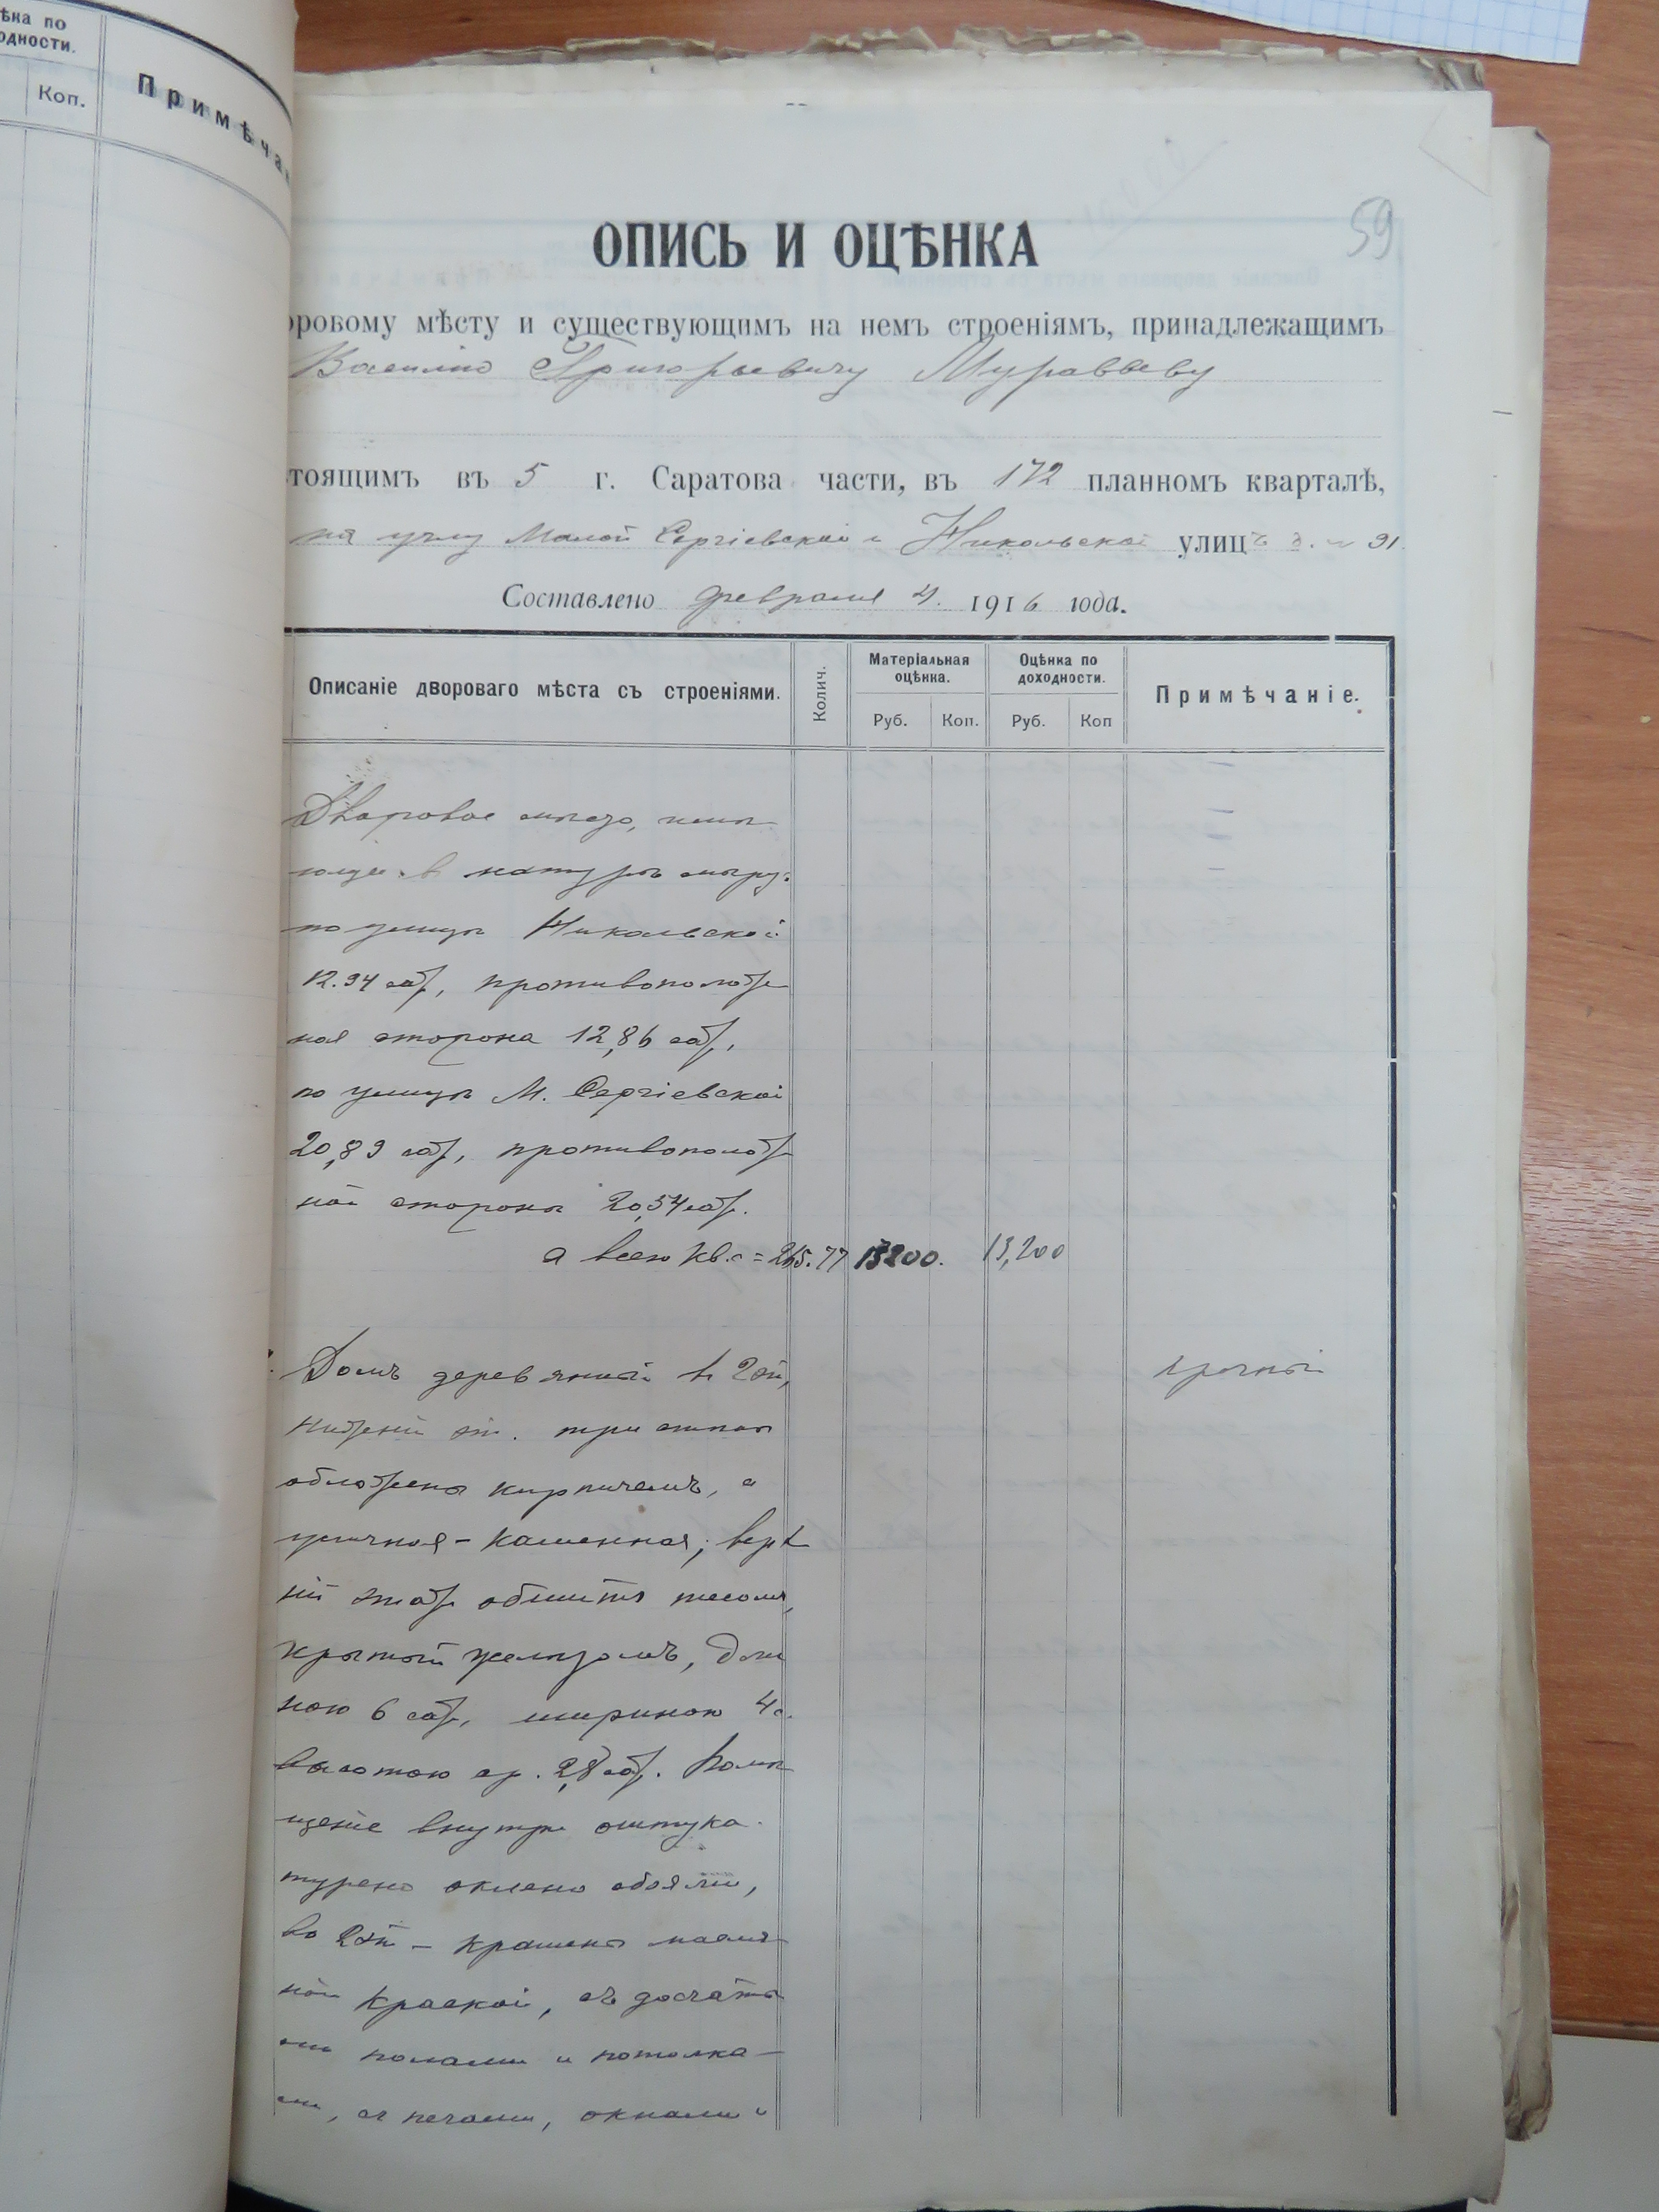 ѣка по
одности.
Коп.
Примѣча
59
ОПИСЬ И ОЦѢНКА
оровому мѣсту и существующимъ на немъ строенiямъ, принадлежащимъ
Василiю Григорьевичу Муравьеву
тоящимъ въ 5 г. Саратова части, въ 172 планномъ кварталѣ,
на углу Малой Сергiевской и Никольской улицъ д. № 91
Составлено февраля 4. 1916 года.
Описанiе двороваго мѣста съ строенiями.
Колич.
Матерiальная оцѣнка.
Оцѣнка по доходности.
Примѣчанiе.
Руб. Коп. Руб. Коп
Дворовое мѣсто, имѣ
ющее въ натурѣ мѣру:
по улицѣ Никольской
12.94 саж, противополож
ная сторона 12,86 саж,
по улицѣ М. Сергiевской
20,89 саж, противополож
ной стороны 20,54 саж.
а всего кв.с = 265.77 13200. 13,200
Домъ деревянный в 2 эт, прочный
нижнiй эт. три стѣны
обложены кирпичемъ, а
уличная - каменная; верх
нiй этаж обшитъ тесомъ,
крытый желѣзомъ, дли
ною 6 саж, шириною 4 с.
высотою ср. 2,8 саж. Помѣ
щенiе внутри оштука
турено оклено обоями,
во 2 эт - крашено масля
ной краской, съ досчаты
ми полами и потолка
ми, съ печами, окнами и